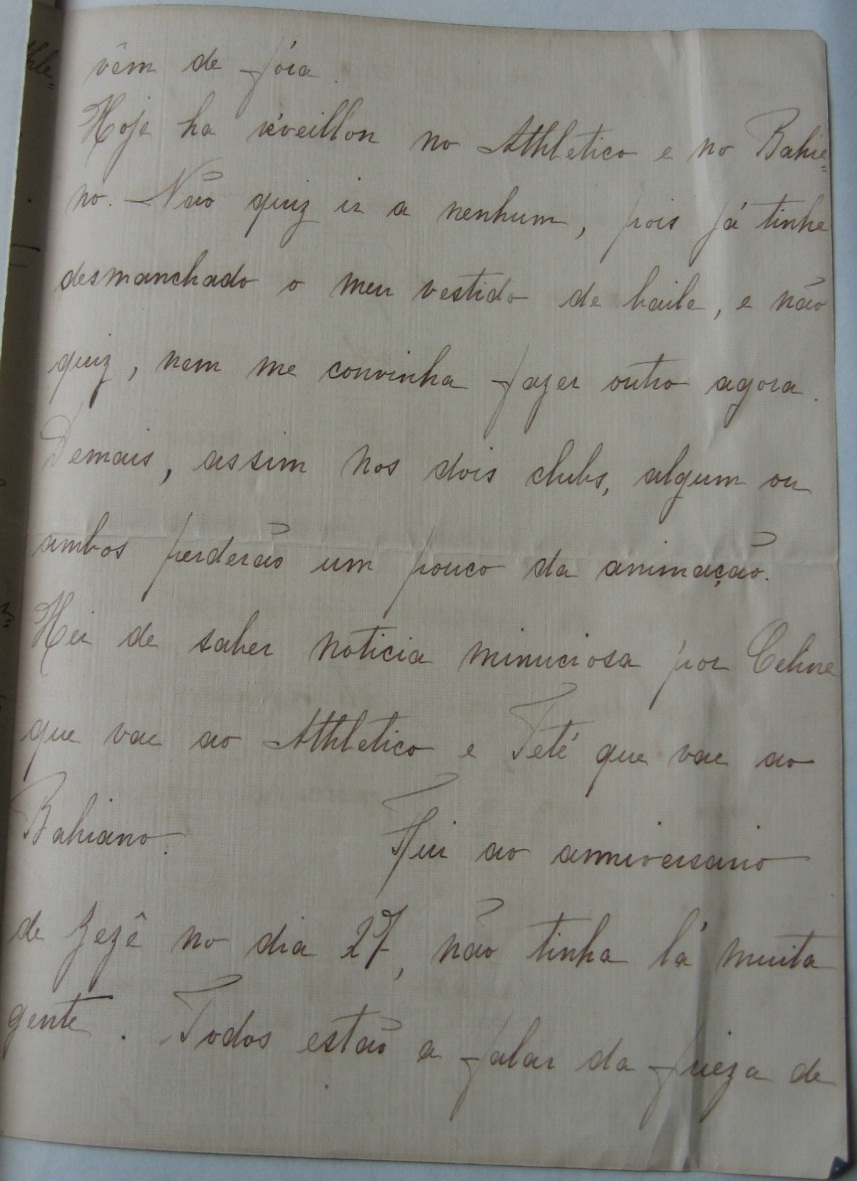 vêm de fóra.
Hoje ha réveillon no Athletico e no Bahia=
no. Não quiz ir a nenhum, pois já tinha
desmanchado o meu vestido de baile, e não
quiz, nem me convinha fazer outro agora.
Demais, assim nos dois clubs, algum ou
ambos perderão um pouco da animação.
Hei de saber noticia minuciosa por Celine
que vae ao Athletico e Teté que vae ao
Bahiano. Fui ao anniversario
de Zezê no dia 27, não tinha lá muita
gente. Todos estão a falar da frieza de